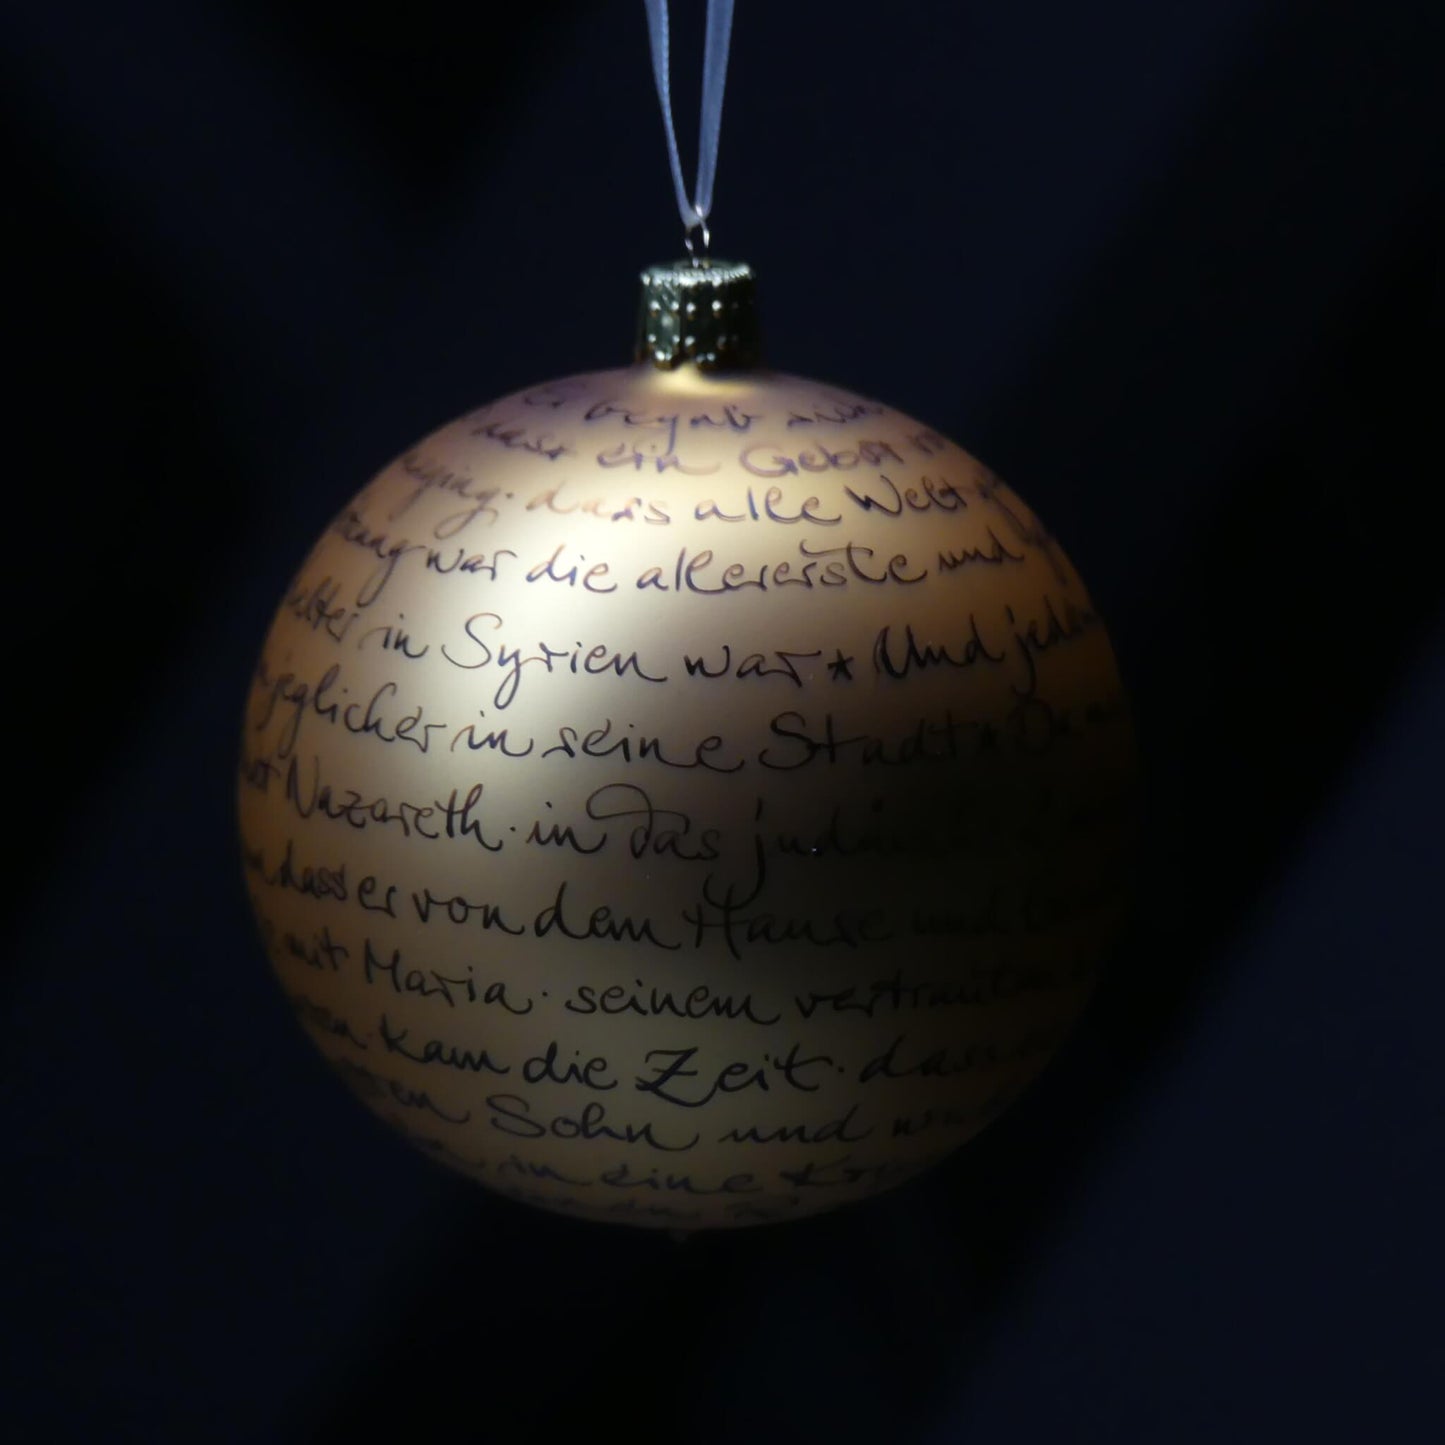 Es begab
dass ein Gebot
ging · dass alle Welt
war die allererste und
in Syrien war * Und jeder
jeglicher in seine Stadt * Da
Nazareth · in das
dass er von dem Hause und
mit Maria · seinem vertrauten
kam die Zeit · dass
Sohn und
in eine